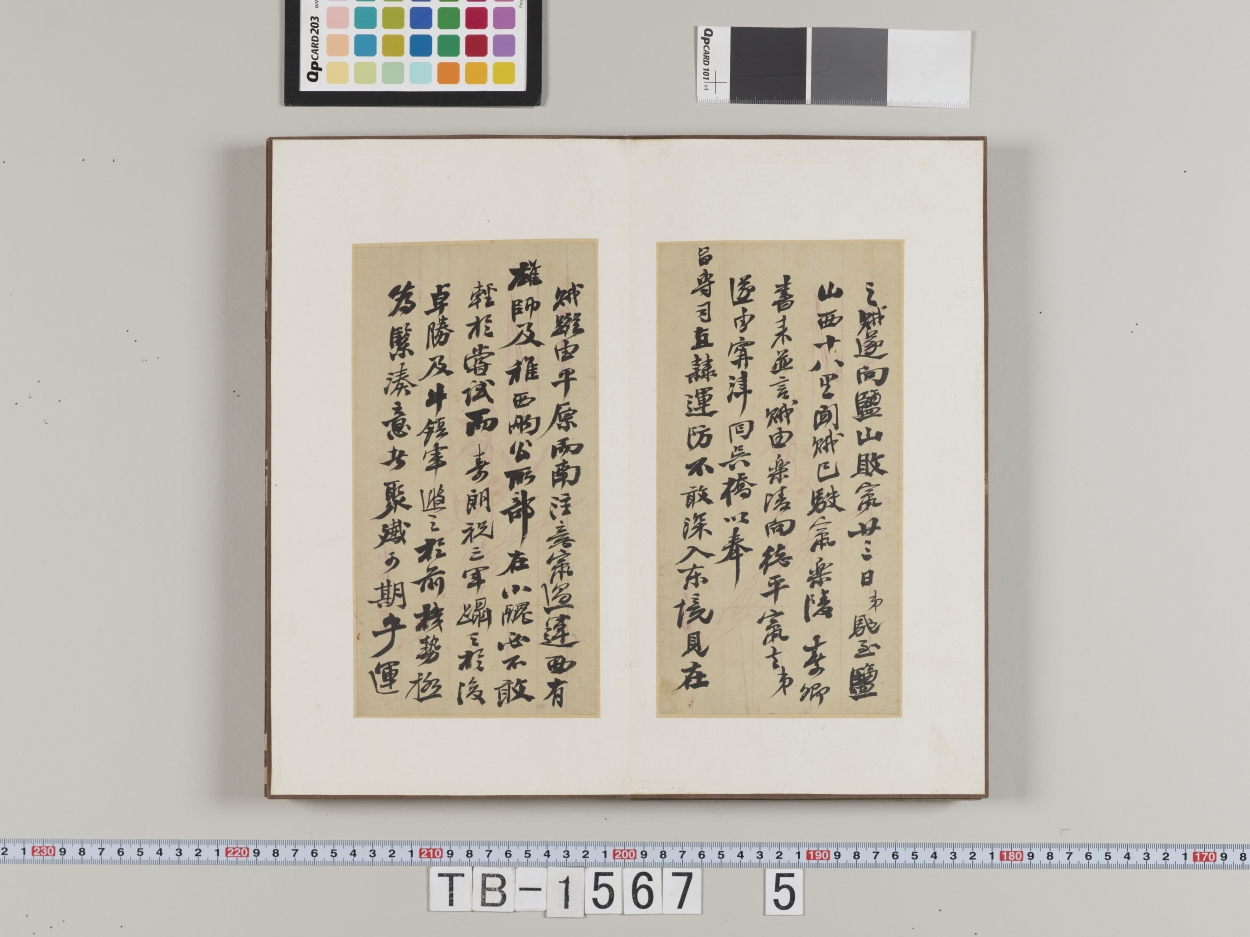 之賊遂向鹽山敗竄廿三日弟馳至鹽
山西十八里聞賊已敗竄樂陵春卿
書来並言賊由樂陵向德平竄去弟
遂由寧津回吳橋以奉
旨專司直隸運防不敢深入东境見在
賊雖由平原而南注意竄過運西有
雄師及稚西两公所部在小醜必不敢
輕於嘗試而壽朗祝三軍躡之於後
卓勝及斗鎮軍遮之於前機勢极
為緊湊意者聚殲可期乎運
QPCARD 203
QPCARD 101 v4
2 1 230 9 8 7 6 5 4 3 2 1 220 9 8 7 6 5 4 3 2 1 210 9 8 7 6 5 4 3 2 1 200 9 8 7 6 5 4 3 2 1 190 9 8 7 6 5 4 3 2 1 180 9 8 7 6 5 4 3 2 1 170 9 8
TB-1567 5